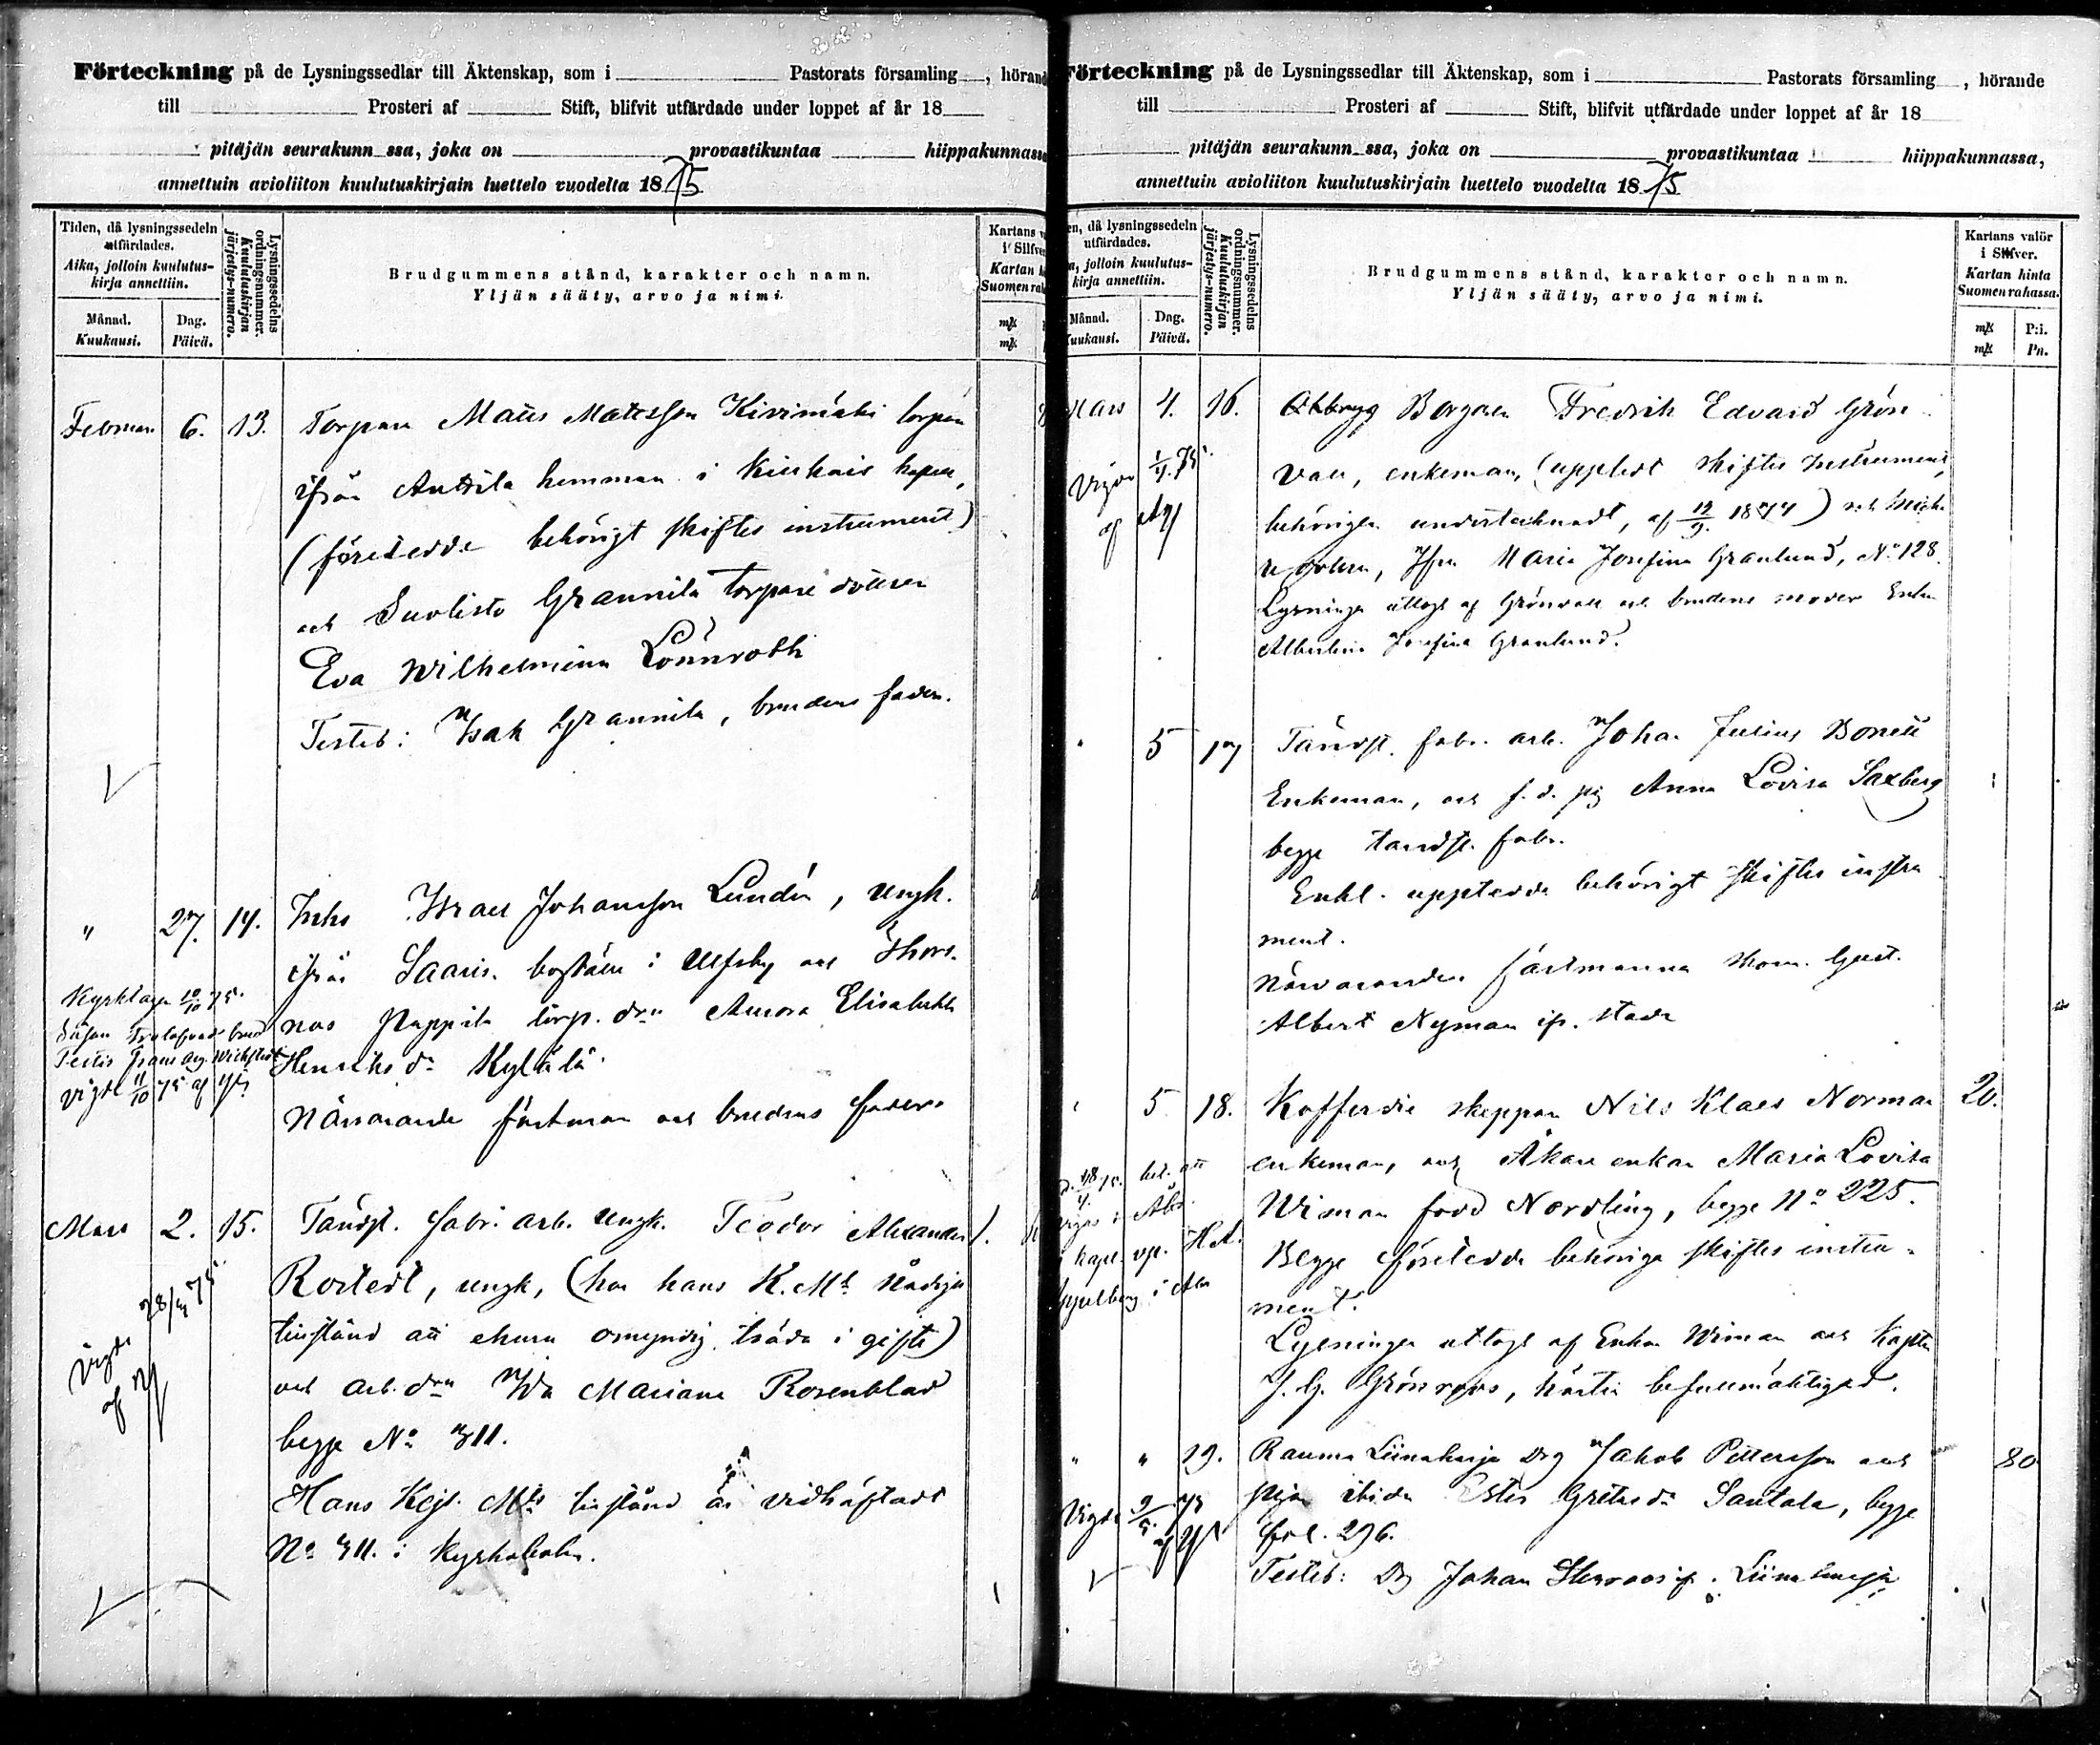 Förteckning på de Lysningssedlar till Äktenskap, som i Pastorats församling, hörande
till Prosteri af Stift, blifvit utfärdade under loppet af år 18
pitäjän seurakunn ssa, joka on provastikuntaa hiippakunnassa
annettuin avioliiton kuulutuskirjain luettelo vuodelta 1875
Tiden, då lysningssedeln utfärdades.
Aika, jolloin kuulutus-kirja annettiin.
Månad.
Kuukausi.
Dag.
Päivä.
Lysningssedelns ordningsnummer.
Kuulutuskirjan järjestys-numero.
Brudgummens stånd, karakter och namn.
Yljän sääty, arvo ja nimi.
Kartans
i Silfver
Kartan
Suomen
mk
mk
Februari 6. 13. Torparen Matts Mattsson Kivimäki torpare
ifrån Anttila hemman i
(företedde behörigt skiftes instrument)
och Suolisto Grannila torpare dottren
Eva Wilhelmina Lönnroth
Testes: Isak Grannila, brudens fader.
" 27. 14. Inhs Israel Johansson Lundén, ungk.
ifrån Saaris boställe i Ulfsby och Thors-
näs Pappila torp. drn Aurora Elisabeth
Henriksdr Kylälä.
Närvarande fästman och brudens fader.
Kyrktagen 10/10 75.
Såsom trolofvad brud
Testis Frans Aug. Wichstedt
vigde 11/10 75 af
Mars 2. 15. Tändst. fabr. arb. ungk. Teodor Alexander 1.
Rostedt, ungk, (har hans K. Mts Nådiga
tillstånd att ehuru omyndig träda i gifte)
och arb. drn Ida Mariana Rosenblad
begge No 311.
Hans Kejs. Mts tillstånd är vidhäftadt
No 311. i Kyrkoboken.
Vigde 28/3 75
af
Förteckning på de Lysningssedlar till Äktenskap, som i Pastorats församling, hörande
till Prosteri af Stift, blifvit utfärdade under loppet af år 18
pitäjän seurakunn ssa, joka on provastikuntaa hiippakunnassa,
annettuin avioliiton kuulutuskirjain luettelo vuodelta 1875
en, då lysningssedeln utfärdades.
a, jolloin kuulutus-kirja annettiin.
Månad.
Kuukausi.
Dag.
Päivä.
Lysningssedelns ordningsnummer.
Kuulutuskirjan järjestys-numero.
Brudgummens stånd, karakter och namn.
Yljän sääty, arvo ja nimi.
Kartans valör i Silfver.
Kartan hinta Suomen rahassa.
mk P:i.
mk Pn.
Mars 4. 16. Borgaren Fredrik Edvard Grön-
vall, enkeman, (upptedt skiftes Instrument,
behörigen undertecknadt, af 12/9 1874) och
Jfrn Maria Josefina Granlund, No 128.
Lysningen uttogs af Grönvall och brudens moder Enkan
Albertina Josefina Granlund.
5 17 Tändst. fabr. arb. Johan Julius
Enkeman, och f.d. pig Anna Lovisa Saxberg
begge tändst. fabr.
Enkl. upptedde behörigt skiftes instru-
ment.
Närvarande fästmanna skom. Gust.
Albert Nyman ifr. stade
5 18. Kofferdie skeppare Nils Klaes Norman 20.
enkeman, och Åkare enkan Maria Lovisa
Wiman född Nordling, begge No 225.
Begge företedde behöriga skiftes instru-
ment.
Lysningen uttogs af Enkan Wiman och Kapten
J. G. Grönroos, härtill befullmäktigad.
" " 19. Rauma Liinaharja Drg Jakob Pettersson och 80
pigan ibidem Ester Gretasdr Santala, begge
fol. 296.
Testes: Drg Johan ifr. Liinaharja
Vigde 9/5 75
af